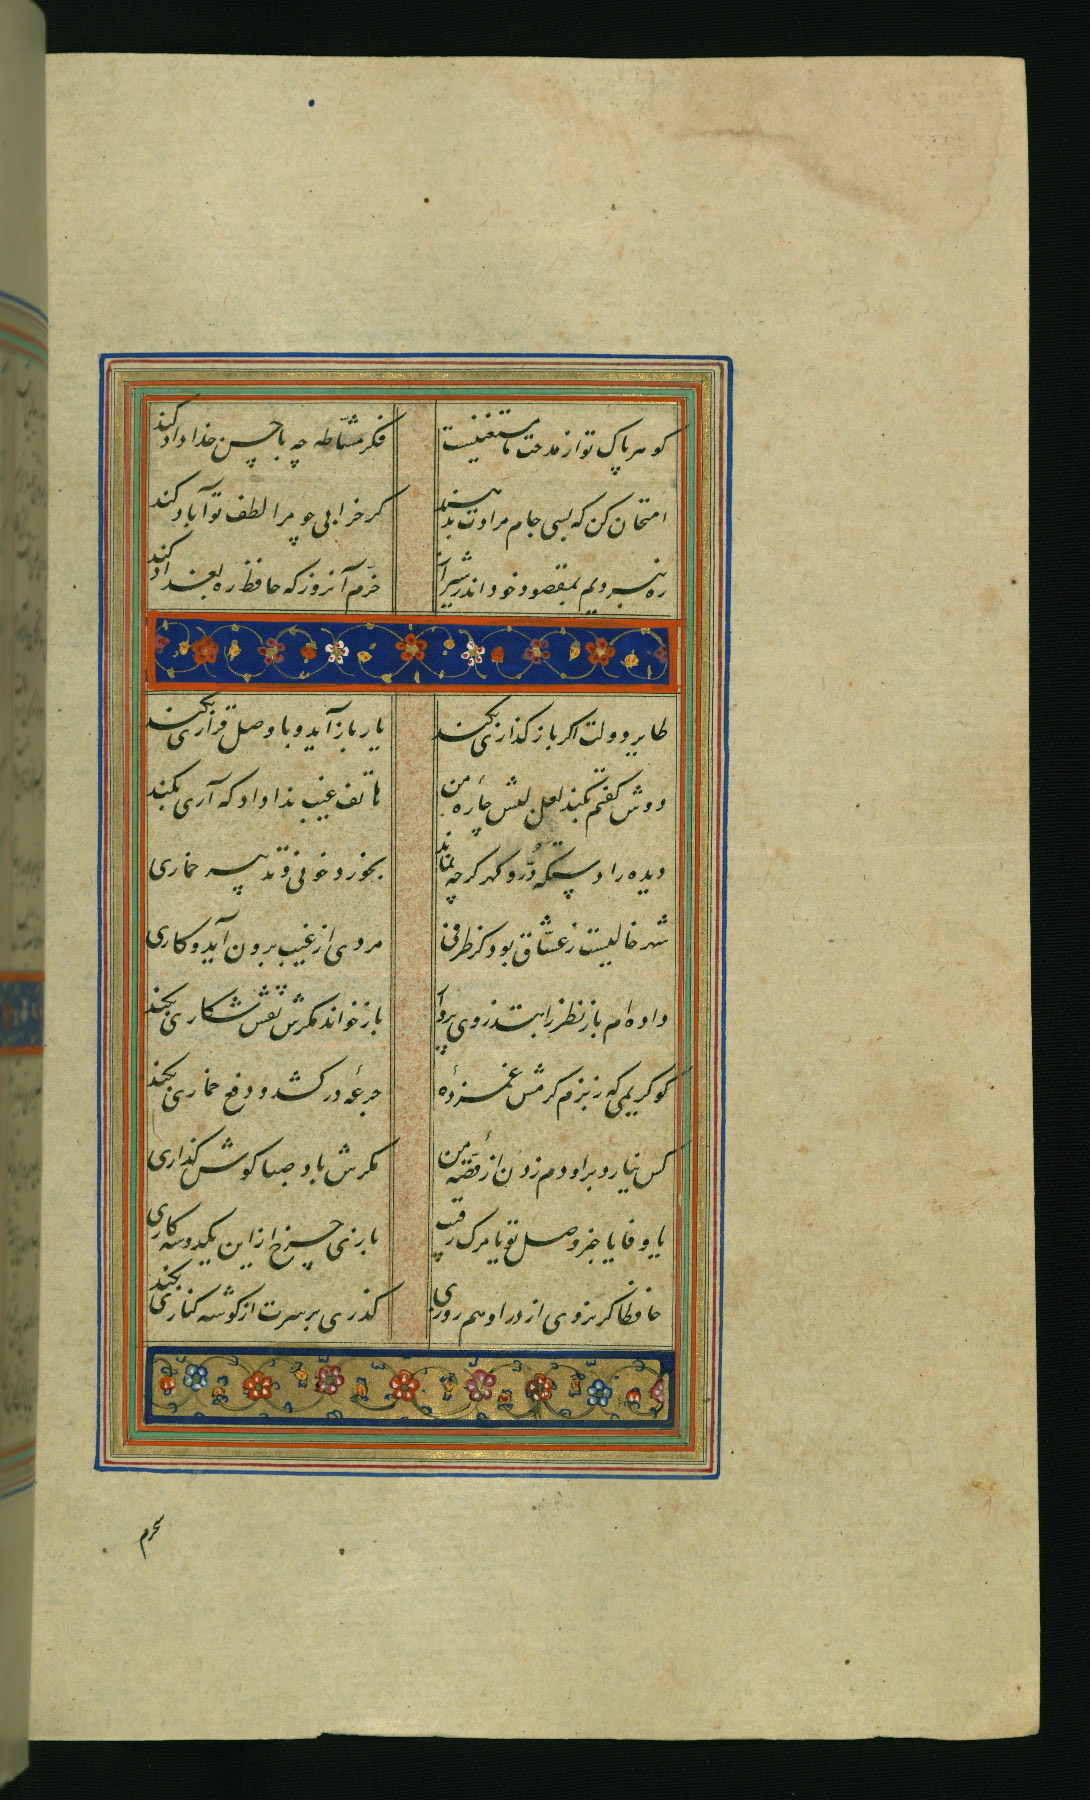 کوهر پاک تو از مدحت ما مستغنیست فکر مشّاطه چه با حسن خداداد کند
امتحان کن که بسی جام مرادت بدهند کر خرابی چو مرا لطف تو آباد کند
ره نبردیم بمقصود خود اندر شیراز خرّم آنروز که حافظ ره بغداد کند
طایر دولت اکر باز کذاری بکند یار باز آید و با وصل قراری بکند
دوش کفتم بکند لعل لبش چارهٔ من هاتف غیب ندا داد که آری بکند
دیده را دستکه درّ و کهر کرچه نماند بخورد خونی و تدبیر خماری
شهر خالیست ز عشّاق بود کز طرفی مردی از غیب برون آید و کاری
داده ام باز نظر را بتذروی پرواز باز خواند مکرش نقش شکاری بکند
کو کریمی که ز بزم کرمش غمزدهٔ جرعهٔ درکشد و دفع خماری بکند
کس نیارد بر او دم زدن از قصّهٔ من مکرش باد صبا کوش کذاری
یا وفا یا خبر وصل تو یا مرک رقیب بازی چرخ ازین یکدوسه کاری
حافظا کر نروی از در او هم روزی کذری بر سرت از کوشه کناری بکند